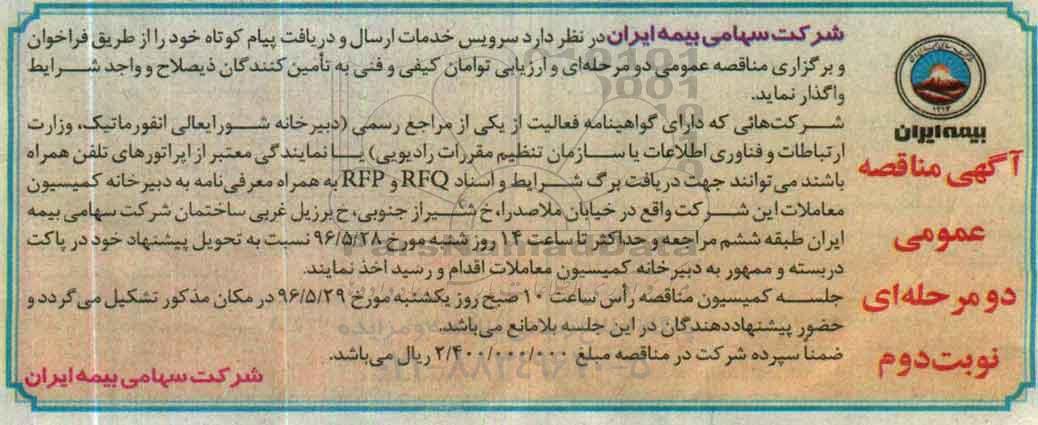 ۱۳۱۴
بیمه ایران
آگهی مناقصه
عمومی
دو مرحله‌ای
نوبت دوم
شرکت سهامی بیمه ایران در نظر دارد سرویس خدمات ارسال و دریافت پیام کوتاه خود را از طریق فراخوان
و برگزاری مناقصه عمومی دو مرحله‌ای و ارزیابی توامان کیفی و فنی به تأمین کنندگان ذیصلاح و واجد شرایط
واگذار نماید.
شرکت‌هائی که دارای گواهینامه فعالیت از یکی از مراجع رسمی (دبیرخانه شورایعالی انفورماتیک، وزارت
ارتباطات و فناوری اطلاعات یا سازمان تنظیم مقررات رادیویی) یا نمایندگی معتبر از اپراتورهای تلفن همراه
باشند می‌توانند جهت دریافت برگ شرایط و اسناد RFQ و RFP به همراه معرفی‌نامه به دبیرخانه کمیسیون
معاملات این شرکت واقع در خیابان ملاصدرا، خ شیراز جنوبی، خ برزیل غربی ساختمان شرکت سهامی بیمه
ایران طبقه ششم مراجعه و حداکثر تا ساعت ۱۴ روز شنبه مورخ ۹۶/۵/۲۸ نسبت به تحویل پیشنهاد خود در پاکت
دربسته و ممهور به دبیرخانه کمیسیون معاملات اقدام و رسید اخذ نمایند.
جلسه کمیسیون مناقصه رأس ساعت ۱۰ صبح روز یکشنبه مورخ ۹۶/۵/۲۹ در مکان مذکور تشکیل می‌گردد و
حضور پیشنهاددهندگان در این جلسه بلامانع می‌باشد.
ضمناً سپرده شرکت در مناقصه مبلغ ۲/۴۰۰/۰۰۰/۰۰۰ ریال می‌باشد.
شرکت سهامی بیمه ایران